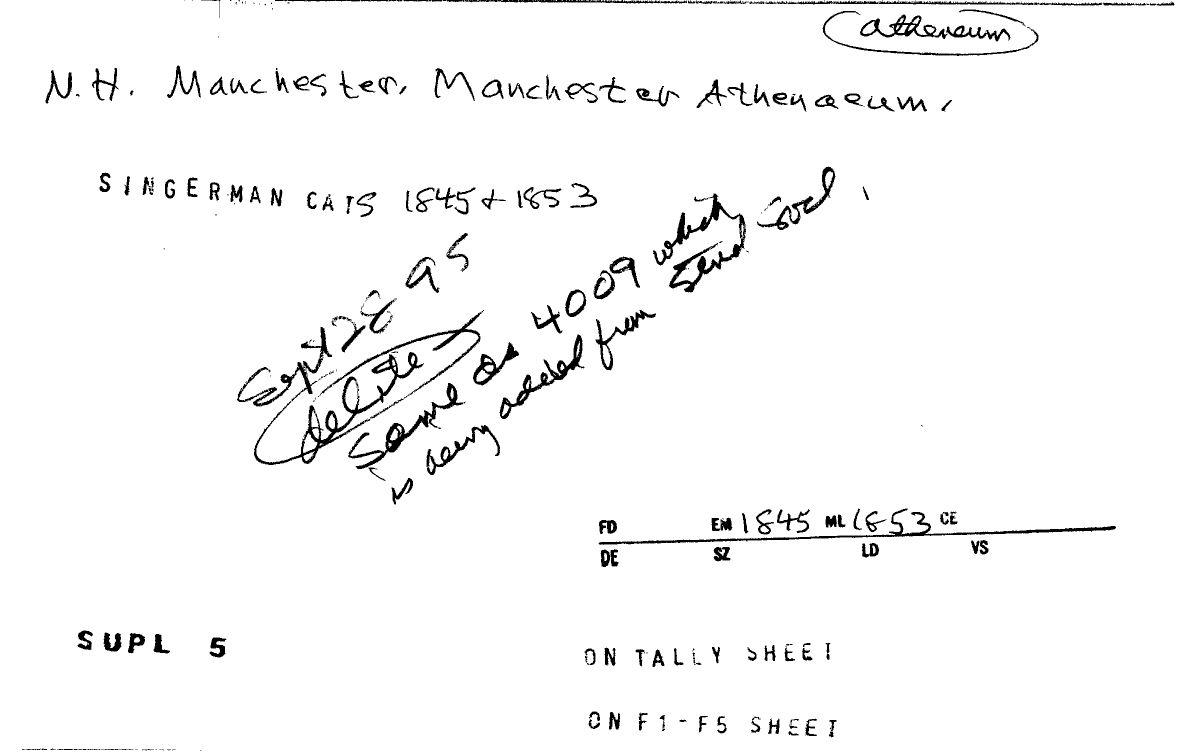 atheneum
N.H. Manchester. Manchester Athenaeum.
SINGERMAN CATS 1845 + 1853
Sept 28 95
delete
Same as 4009 which
is being added from Send Socl.
FD EM 1845 ML 1853 CE
DE SZ LD VS
SUPL 5
ON TALLY SHEET
ON F1-F5 SHEET